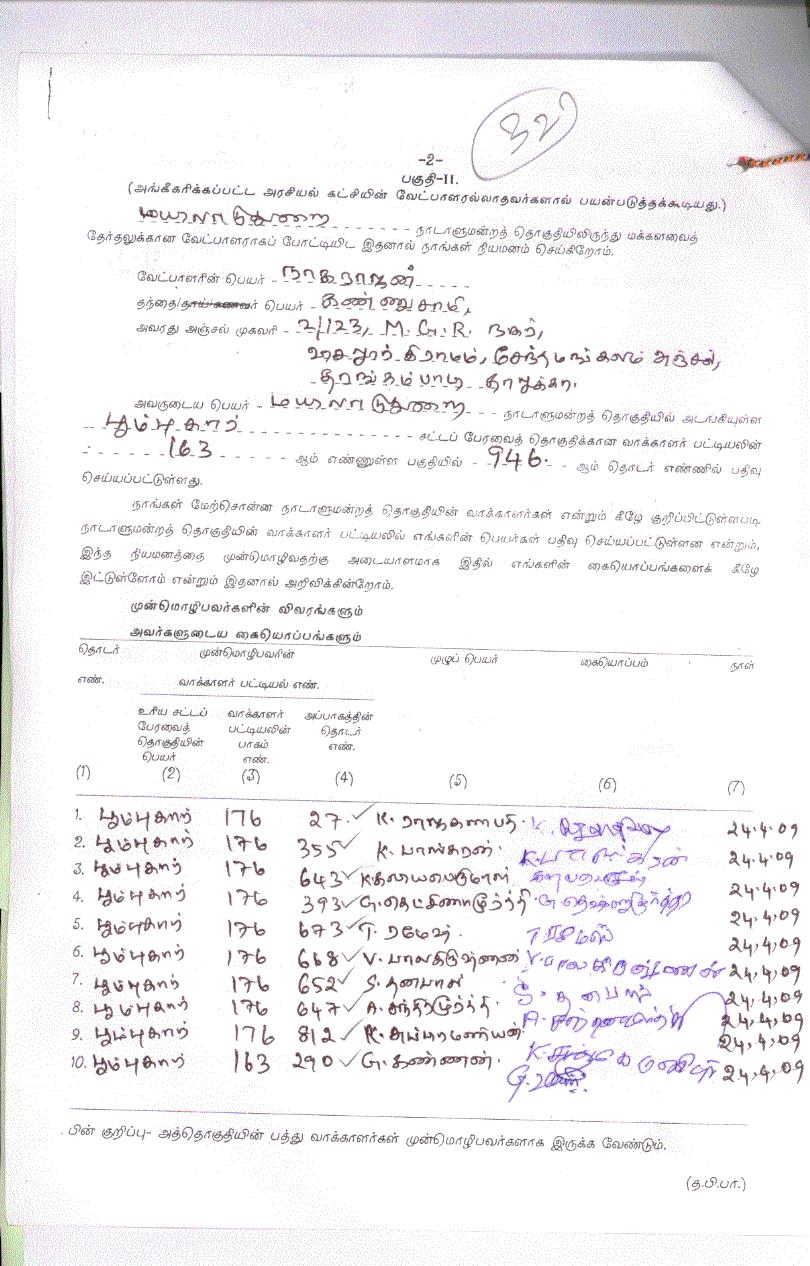 32
-2-
பகுதி-II.
(அங்கீகரிக்கப்பட்ட அரசியல் கட்சியின் வேட்பாளரல்லாதவர்களால் பயன்படுத்தக்கூடியது.)
மயிலாடுதுறை நாடாளுமன்றத் தொகுதியிலிருந்து மக்களவைத்
தேர்தலுக்கான வேட்பாளராகப் போட்டியிட இதனால் நாங்கள் நியமனம் செய்கிறோம்.
வேட்பாளரின் பெயர் - நாகராஜன்
தந்தை/தாய்/கணவர் பெயர் - கண்ணுசாமி,
அவரது அஞ்சல் முகவரி - 2/123, M.G.R. நகர்,
கிராமம், சேந்தமங்கலம் அஞ்சல்,
தரங்கம்பாடி தாலுக்கா.
அவருடைய பெயர் - மயிலாடுதுறை நாடாளுமன்றத் தொகுதியில் அடங்கியுள்ள
பூம்புகார் சட்டப் பேரவைத் தொகுதிக்கான வாக்காளர் பட்டியலின்
163 ஆம் எண்ணுள்ள பகுதியில் - 946. - ஆம் தொடர் எண்ணில் பதிவு
செய்யப்பட்டுள்ளது.
நாங்கள் மேற்சொன்ன நாடாளுமன்றத் தொகுதியின் வாக்காளர்கள் என்றும் கீழே குறிப்பிட்டுள்ளபடி
நாடாளுமன்றத் தொகுதியின் வாக்காளர் பட்டியலில் எங்களின் பெயர்கள் பதிவு செய்யப்பட்டுள்ளன என்றும்,
இந்த நியமனத்தை முன்மொழிவதற்கு அடையாளமாக இதில் எங்களின் கையொப்பங்களைக் கீழே
இட்டுள்ளோம் என்றும் இதனால் அறிவிக்கின்றோம்.
முன்மொழிபவர்களின் விவரங்களும்
அவர்களுடைய கையொப்பங்களும்
தொடர் முன்மொழிபவரின் முழுப் பெயர் கையொப்பம் நாள்
எண். வாக்காளர் பட்டியல் எண்.
உரிய சட்டப் வாக்காளர் அப்பாகத்தின்
பேரவைத் பட்டியலின் தொடர்
தொகுதியின் பாகம் எண்.
பெயர் எண்.
(1) (2) (3) (4) (5) (6) (7)
1. பூம்புகார் 176 27 K. ராஜகணபதி 24.4.09
2. பூம்புகார் 176 355 K. பாஸ்கரன் K. பாஸ்கரன் 24.4.09
3. பூம்புகார் 176 643 K. கலியபெருமாள் 24.4.09
4. பூம்புகார் 176 393 G. தெட்சிணாமூர்த்தி 24.4.09
5. பூம்புகார் 176 673 T. ரமேஷ் T ரமேஸ் 24.4.09
6. பூம்புகார் 176 668 V. பாலகிருஷ்ணன் V. பாலகிருஷ்ணன் 24.4.09
7. பூம்புகார் 176 652 S. தனபால் S. தனபால் 24.4.09
8. பூம்புகார் 176 647 A. சந்திரமூர்த்தி 24.4.09
9. பூம்புகார் 176 812 K. சுப்ரமணியன் 24.4.09
10. பூம்புகார் 163 290 G. கண்ணன் 24.4.09
பின் குறிப்பு- அத்தொகுதியின் பத்து வாக்காளர்கள் முன்மொழிபவர்களாக இருக்க வேண்டும்.
(த.பி.பா.)